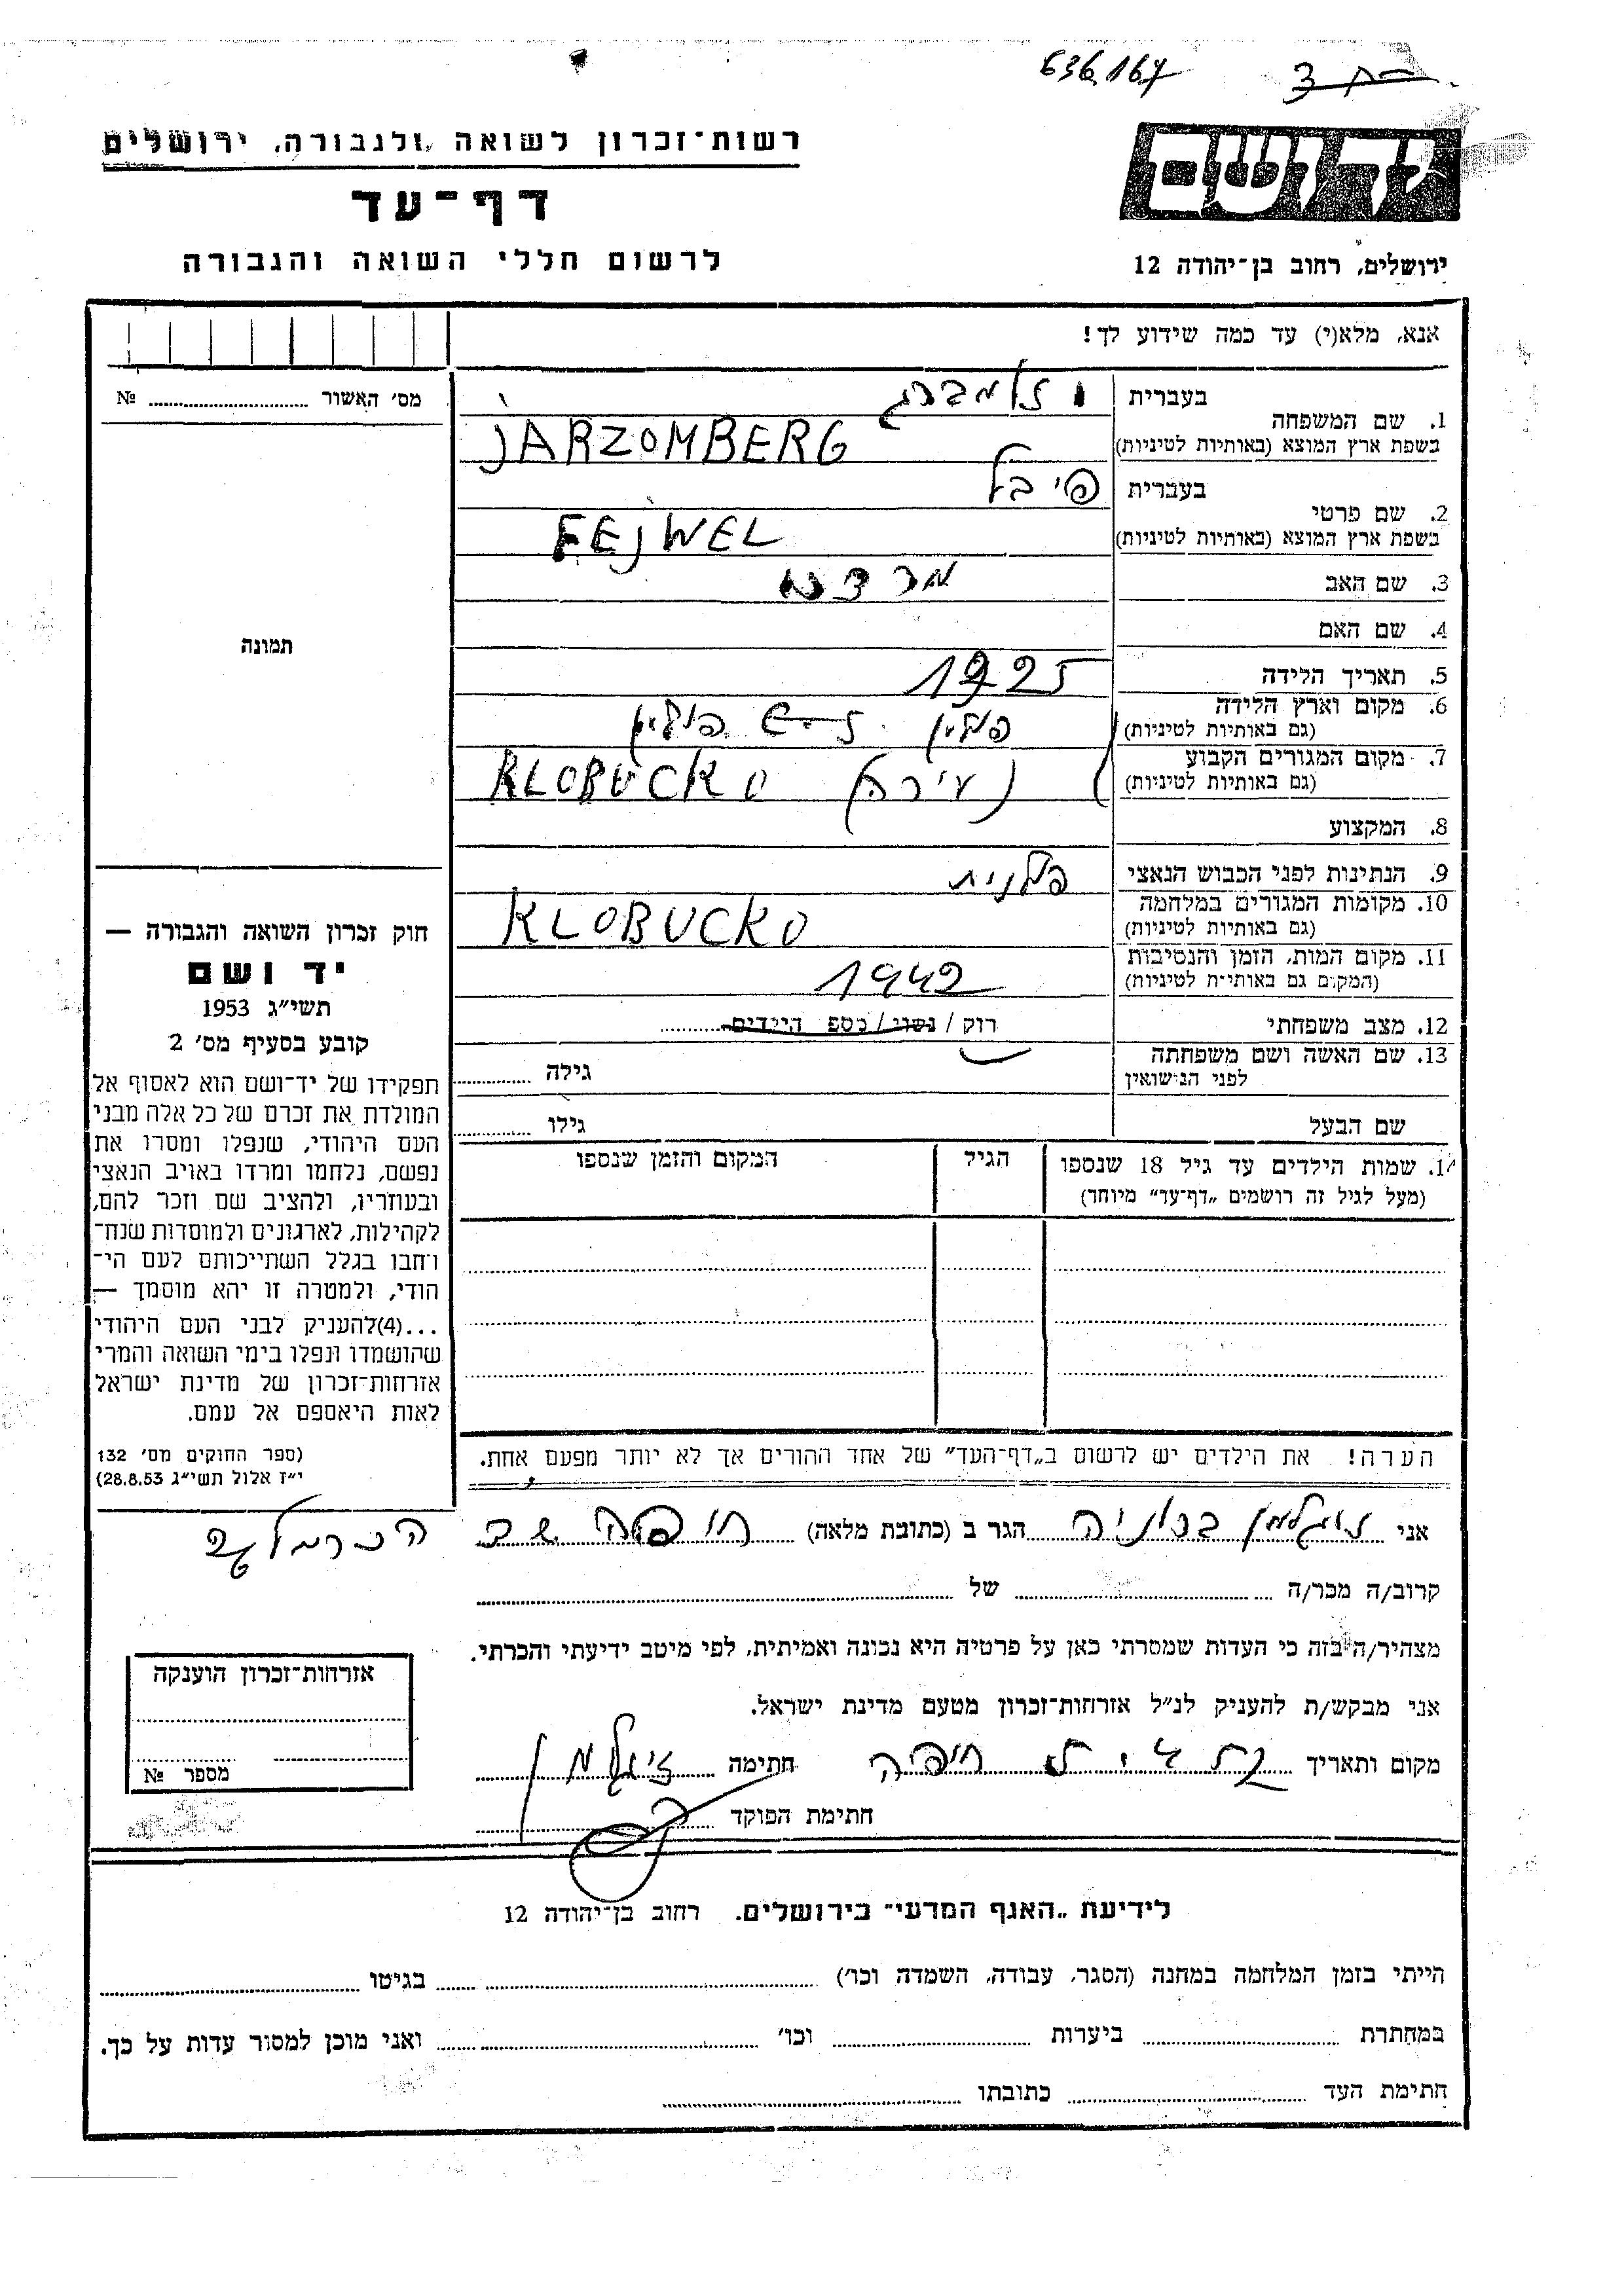 636167
רשות־זכרון לשואה ולגבורה, ירושלים
דף־עד
לרשום חללי השואה והגבורה
יד ושם
ירושלים, רחוב בן־יהודה 12
אנא, מלא(י) עד כמה שידוע לך!
מס׳ האשור № 
1. שם המשפחה בעברית
בשפת ארץ המוצא (באותיות לטיניות) JARZOMBERG
2. שם פרטי בעברית פיבל
בשפת ארץ המוצא (באותיות לטיניות) FEJWEL
3. שם האב
4. שם האם
5. תאריך הלידה 1925
6. מקום וארץ הלידה (גם באותיות לטיניות) פולין פולין
7. מקום המגורים הקבוע (גם באותיות לטיניות) (עירה) KLOBUCKO
8. המקצוע
9. הנתינות לפני הכבוש הנאצי פולנית
10. מקומות המגורים במלחמה (גם באותיות לטיניות) KLOBUCKO
11. מקום המות, הזמן והנסיבות (המקום גם באותיות לטיניות) 1942
12. מצב משפחתי רוק / נשוי / מספר הילדים
13. שם האשה ושם משפחתה לפני הנישואין גילה
שם הבעל גילו
14. שמות הילדים עד גיל 18 שנספו (מעל לגיל זה רושמים „דף־עד״ מיוחד) הגיל המקום והזמן שנספו
תמונה
חוק זכרון השואה והגבורה —
יד ושם
תשי״ג 1953
קובע בסעיף מס׳ 2
תפקידו של יד־ושם הוא לאסוף אל
המולדת את זכרם של כל אלה מבני
העם היהודי, שנפלו ומסרו את
נפשם, נלחמו ומרדו באויב הנאצי
ובעוזריו, ולהציב שם וזכר להם,
לקהילות, לארגונים ולמוסדות שנח־
רחבו בגלל השתייכותם לעם הי־
הודי, ולמטרה זו יהא מוסמך —
...(4)להעניק לבני העם היהודי
שהושמדו ונפלו בימי השואה והמרי
אזרחות־זכרון של מדינת ישראל
לאות היאספם אל עמם.
(ספר החוקים מס׳ 132
י״ז אלול תשי״ג 28.8.53)
הערה! את הילדים יש לרשום ב„דף־העד״ של אחד ההורים אך לא יותר מפעם אחת.
אני הגר ב (כתובת מלאה) חיפה
קרוב/ה מכר/ה של
מצהיר/ה בזה כי העדות שמסרתי כאן על פרטיה היא נכונה ואמיתית, לפי מיטב ידיעתי והכרתי.
אני מבקש/ת להעניק לנ״ל אזרחות־זכרון מטעם מדינת ישראל.
מקום ותאריך חיפה חתימה
חתימת הפוקד
אזרחות־זכרון הוענקה
מספר №
לידיעת „האגף המדעי״ בירושלים. רחוב בן־יהודה 12
הייתי בזמן המלחמה במחנה (הסגר, עבודה, השמדה וכו׳) בגיטו
במחתרת ביערות וכו׳ ואני מוכן למסור עדות על כך.
חתימת העד כתובתו